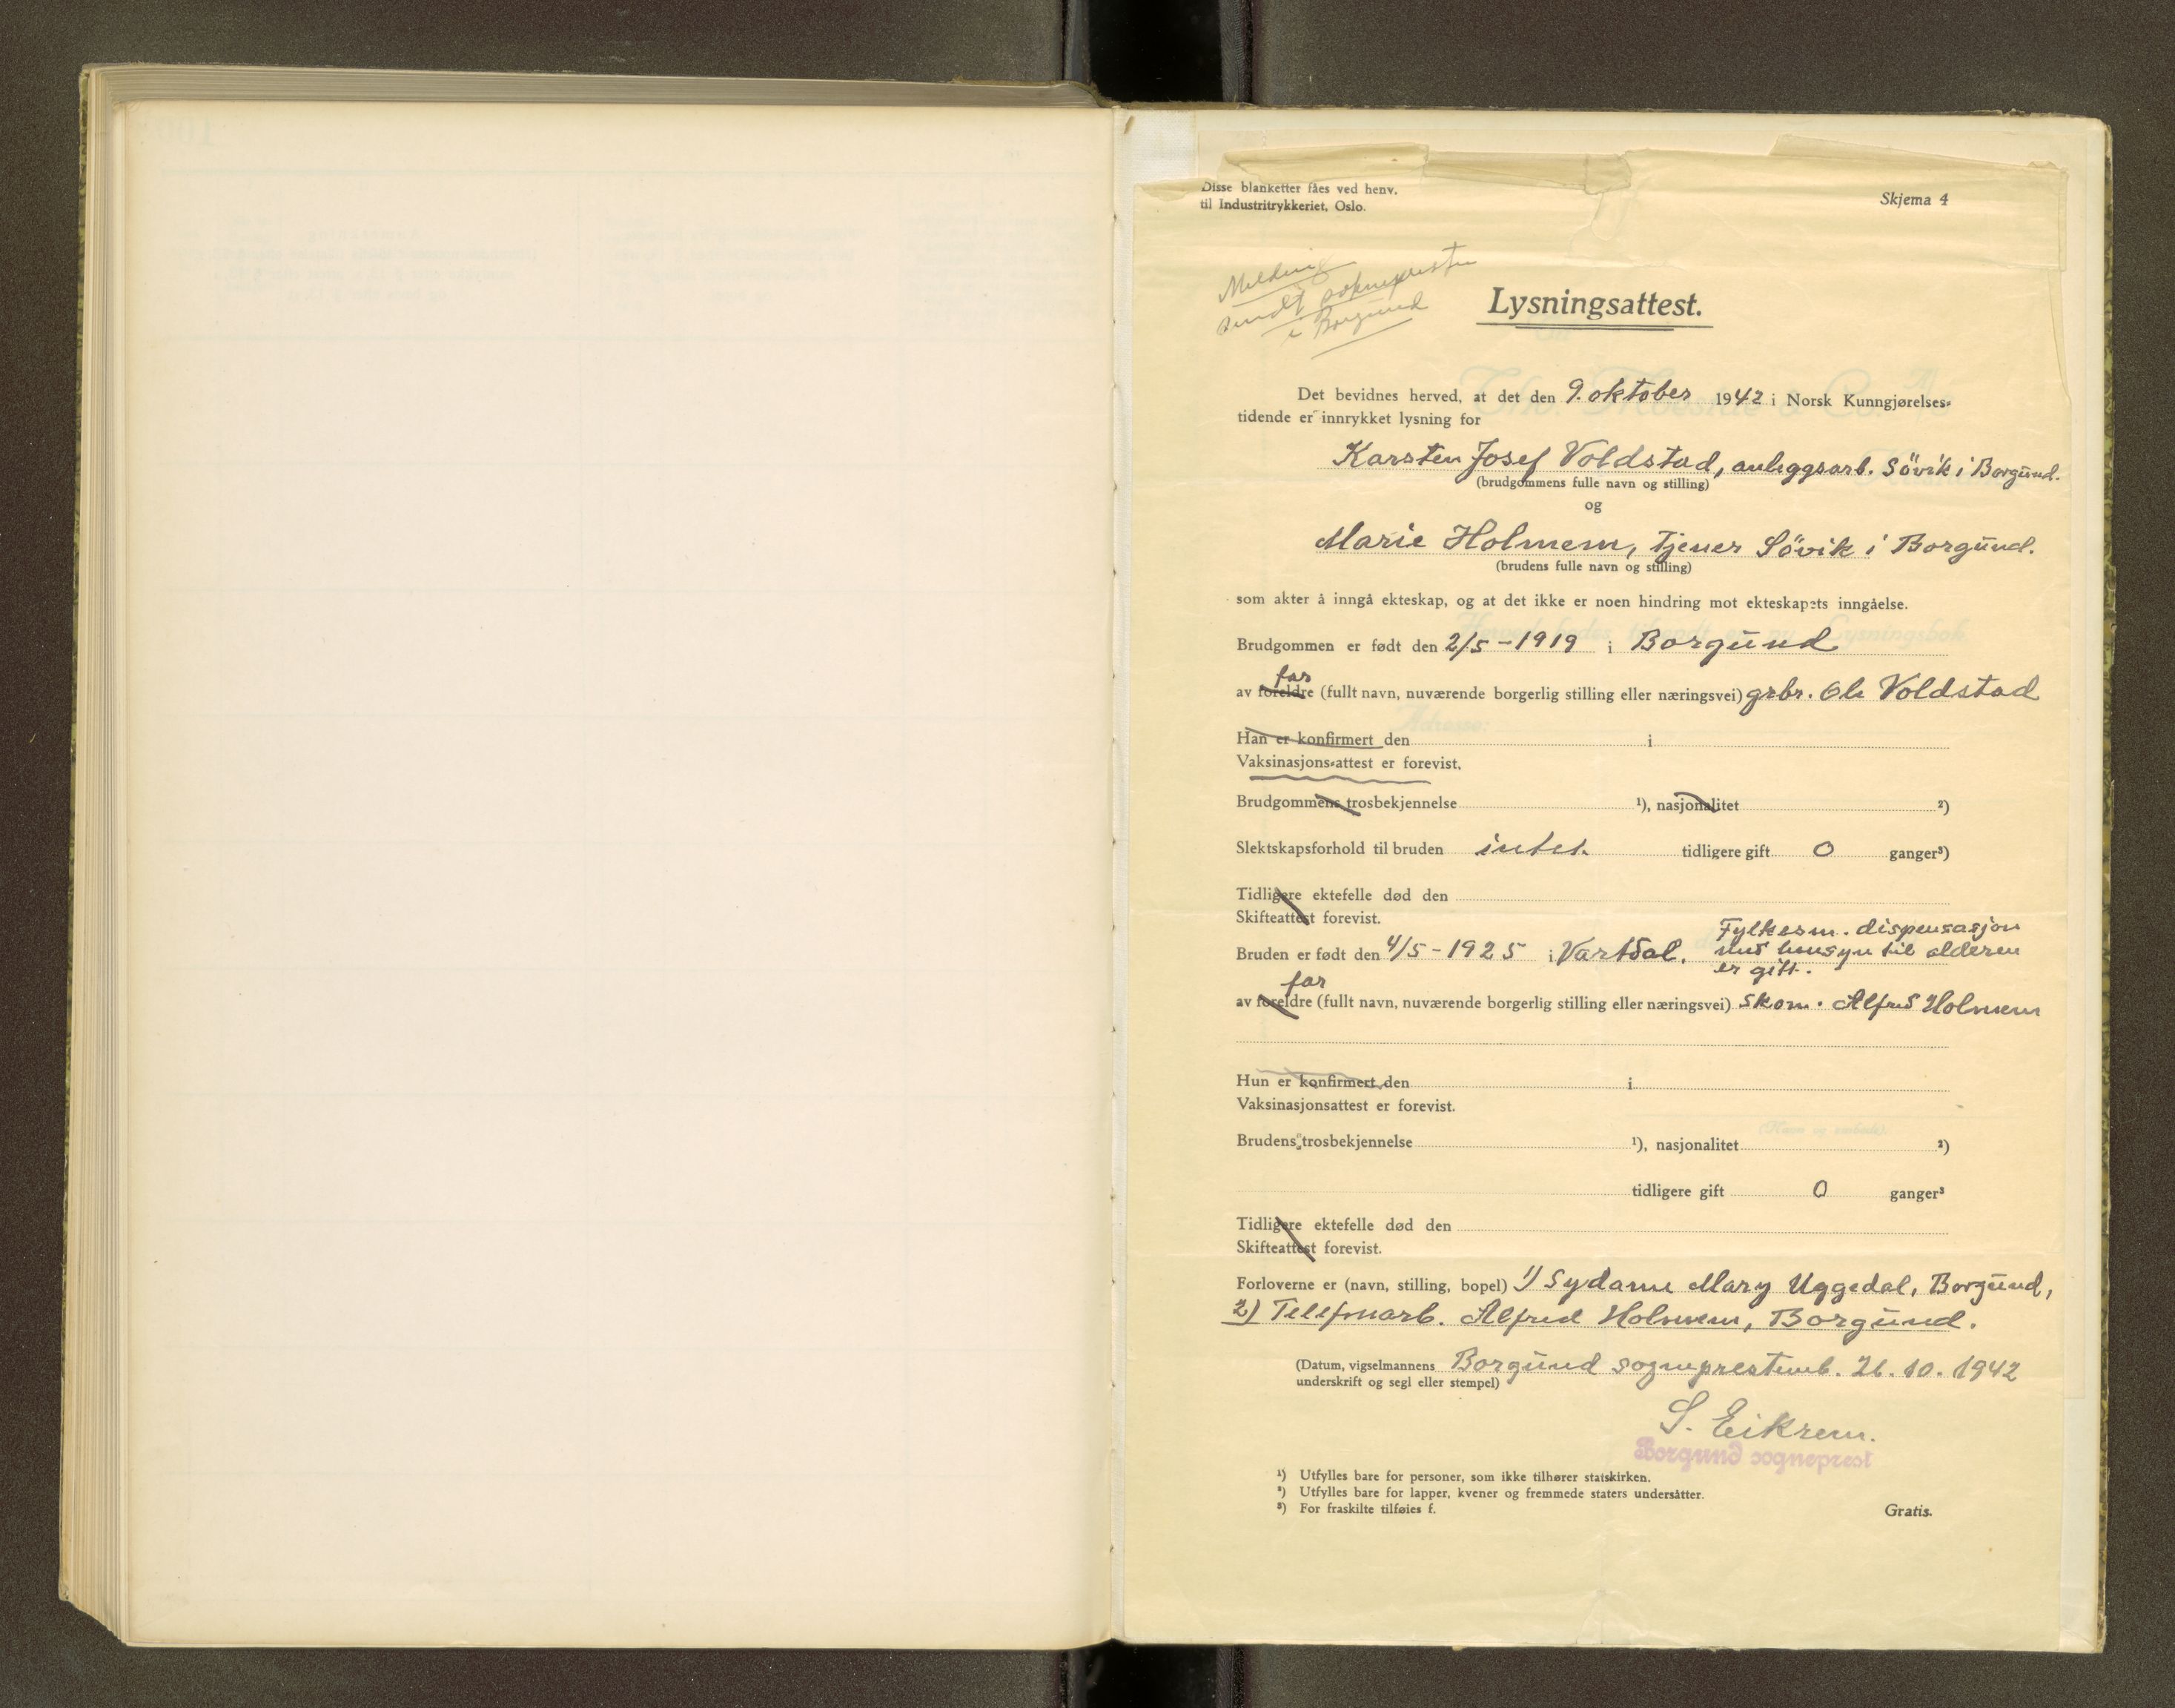 Disse blanketter fåes ved henv.
til Industritrykkeriet, Oslo.
Skjema 4
Melding
sendt soknepresten
i Borgund
Lysningsattest.
Det bevidnes herved, at det den 9. oktober 1942 i Norsk Kunngjørelses-
tidende er innrykket lysning for
Karsten Josef Voldstad, anleggsarb. Søvik i Borgund.
(brudgommens fulle navn og stilling)
og
Marie Holmem, tjener Søvik i Borgund.
(brudens fulle navn og stilling)
som akter å inngå ekteskap, og at det ikke er noen hindring mot ekteskapets inngåelse.
Brudgommen er født den 2/5 - 1919 i Borgund
far
av foreldre (fullt navn, nuværende borgerlig stilling eller næringsvei) grbr. Ole Voldstad
Han er konfirmert den i
Vaksinasjons-attest er forevist.
Brudgommens trosbekjennelse ¹), nasjonalitet ²)
Slektskapsforhold til bruden intet. tidligere gift 0 ganger³)
Tidligere ektefelle død den
Skifteattest forevist.
Fylkesm. dispensasjon
Bruden er født den 4/5 - 1925 i Vartdal. med hensyn til alderen
er gitt.
far
av foreldre (fullt navn, nuværende borgerlig stilling eller næringsvei) skom. Alfred Holmem
Hun er konfirmert den i
Vaksinasjonsattest er forevist.
Brudens trosbekjennelse ¹), nasjonalitet ²)
tidligere gift 0 ganger³
Tidligere ektefelle død den
Skifteattest forevist.
Forloverne er (navn, stilling, bopel) 1) Sydame Mary Uggedal, Borgund,
2) Telefonarb. Alfred Holmem, Borgund.
(Datum, vigselmannens Borgund sogneprestemb. 26.10.1942
underskrift og segl eller stempel)
S. Eikrem.
Borgund sogneprest
¹) Utfylles bare for personer, som ikke tilhører statskirken.
²) Utfylles bare for lapper, kvener og fremmede staters undersåtter.
³) For fraskilte tilføies f.
Gratis.